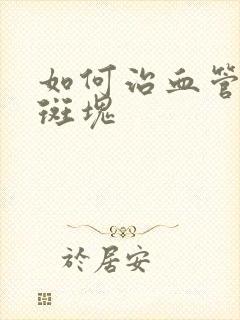 如何治血管
斑塊
於居安